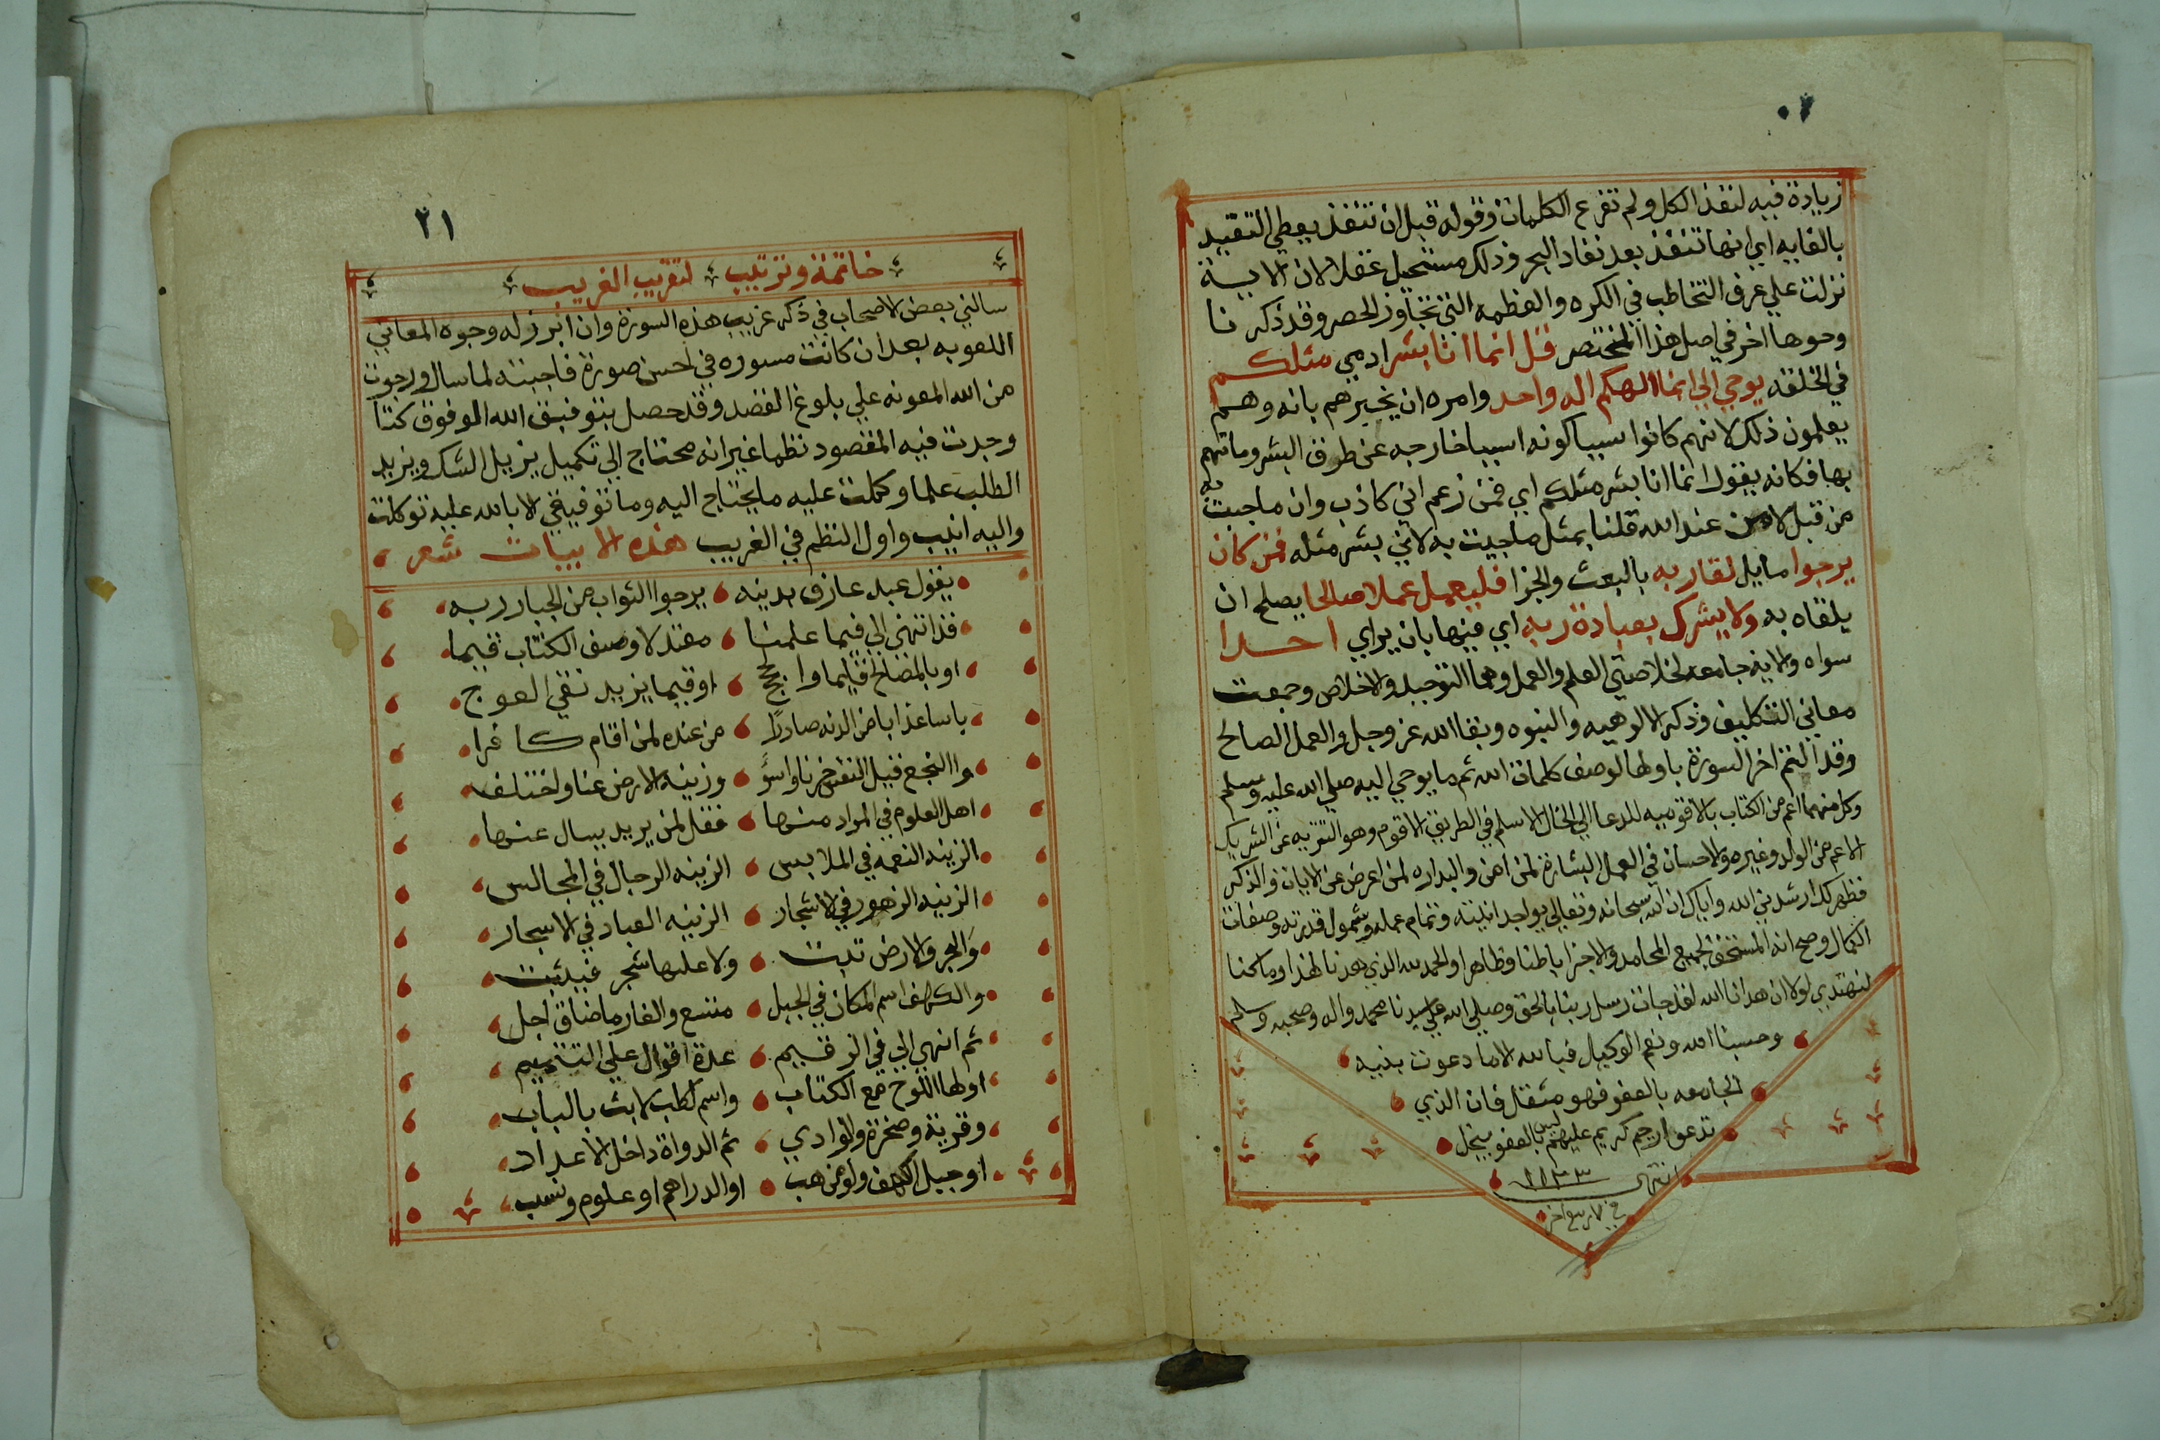 زيادة فيه لنفذ الكل ولم تفرع الكلمات وقوله قبل ان تنفذ يعطي التقييد
بالغايه اي انها تنفذ بعد نفاد البحر وذلك مستحيل عقلا لان الاية
نزلت علي عرف التخاطب في الكره والعظمه التي تتجاوز الحصر وقد ذكرنا
وحوها اخر في اصل هذا المختصر قل انما انا بشر ادمي مثلكم
في الخلقه يوحي الي انما الهكم اله واحد وامره ان يخبرهم بانه وهم
يعلمون ذلك لانهم كانوا سببا كونه اسببا خارجه عن طرق البشر وماتهم
بها فكانه يقول انما انا بشر مثلكم اي فمن زعم اني كاذب وان ما جيت به
من قبل لا من عند الله قلنا بمثل ما جيت به لاني بشر مثله فمن كان
يرجوا مايل لقا ربه بالبعث والجزا فليعمل عملا صالحا يصلح ان
يلقاه به ولا يشرك بعبادة ربه اي فيها بان يراي احدا
سواه والاية جامعه لخلاصتي العلم والعمل وهما التوحيد والاخلاص وجمعت
معاني التكليف وذكر الالوهيه والنبوه وبقا الله عز وجل والعمل الصالح
وقد التم اخر السورة باولها لوصف كلمات الله ثم ما يوحي اليه صلي الله عليه وسلم
وكل منهما اعم من الكتاب بالاقوميه للدعا الي الحال الاسلم في الطريق الاقوم وهو التنزيه عن الشريك
الاعم من الولد وغيره والاحسان في العمل البشارة لمن امن والنداره لمن اعرض عن الايات والذكر
فظهر لك ارشدني الله واياك ان الله سبحانه وتعالي بواحدانيته وتمام عمله وشمول قدرته وصفات
الكمال وصح انه المستحق لجميع المحامد والاجزا باطنا وظاهرا والحمد لله الذي هدنا لهذا وما كنا
لنهتدي لولا ان هدانا الله لقد جات رسل ربنا بالحق وصلي الله علي سيدنا محمد واله وصحبه وسلم
وحسبنا الله ونعم الوكيل فبالله الا ما دعوت بنيه
لجامعه بالعفو فهو مثقل فان الذي
تدعو ارحم كريم عليهم ليس بالعفو يبخل
انتهى ١١٣٣
في ربيع اخر
٢١
خاتمة وترتيب لتقريب الغريب
سالني بعض الاصحاب في ذكر غريب هذه السورة وان ابرز له وجوه المعاني
اللغويه بعد ان كانت مسوره في احسن صورة فاجبته لما سال ورجوت
من الله المعونه علي بلوغ القصد وقد حصل بتوفيق الله الموفوق كتا
وجدت فيه المقصود نظما غير انه محتاج الي تكميل يزيل الشك ويزيد
الطلب علما وكملت عليه ما يحتاج اليه وما توفيقي الا بالله عليه توكلت
واليه انيب واول النظم في الغريب هذه الابيات شعر
يقول عبد عارف بدينه يرجوا الثواب من الجبار ربه
قد انتهي الي فيما علمنا مفتد لا وصف الكتاب قيما
او بالمصالح قايما وابحج او قيما يزيد نفي العوج
باسا عذابا من لدنه صادرا من عنده لمن اقام كافرا
والنجع قيل التفخر ناواسو وزينه الارض عنا ولختلف
اهل العلوم في المراد منها فقل لمن يريد يسال عنها
الزينه النعمه في الملابس الزينه الرجال في المجالس
الزينه الزهور في الاشجار الزينه العباد في الاسحار
والجرز الارض تبت ولا عليها شجر فيثبت
والكهف اسم المكان في الجبل متسع والغار ما ضاق اجل
ثم انتهي الي في الرقيم عدة اقوال علي التتميم
اولها اللوح مع الكتاب واسم لكلب لابث بالباب
وقرية وصخرة والوادي ثم الدواة داخل الاعداد
او جبل الكهف ولو من هب او الدراهم او علوم ونسب